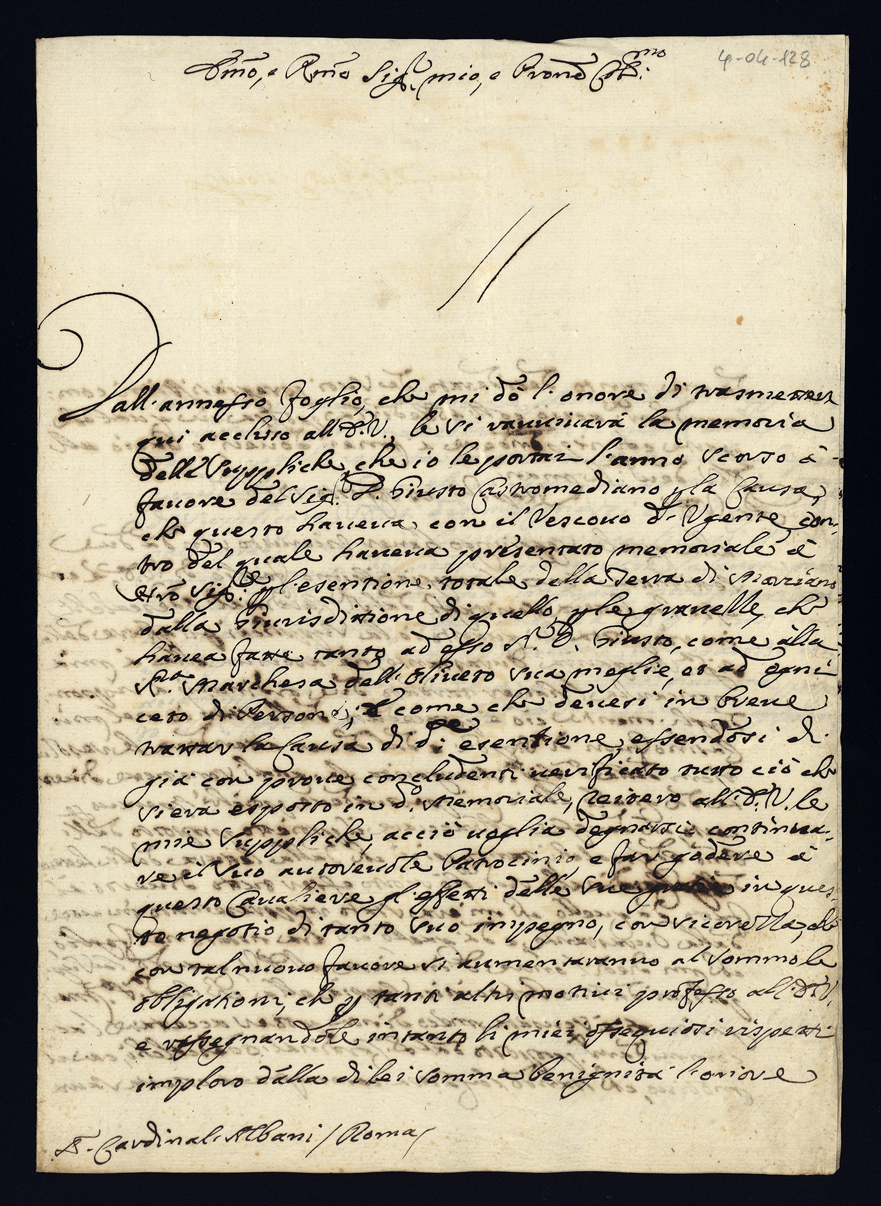 Em̃o, e Rm̃o Sig.r mio, e Pron̄e Col.mo
4-04-128
Dall'annesso foglio, che mi dò l'onore di trasmetter
qui accluso all'E.V., le si ravvivarà la memoria
delle suppliche, che io le portai l'anno scorso à
favore del Sig.r D. Giusto Castromediano p la Causa,
che questo haveva con il Vescovo di Ugente con-
tro del quale haveva presentato memoriale à
Nr̃o Sig.re p l'esentione totale della Terra di Morciano
dalla Giurisdittione di quello p le gravezze, che
havea fatte tanto ad esso S.r D. Giusto, come alla
S.ra Marchesa dell'Oliveto sua moglie, et ad ogni
ceto di Persone; E come che devesi in breve
trattar la Causa di d.a esentione, essendosi di
già con prove concludenti verificato tutto ciò che
si era esposto in d.o Memoriale, reitero all'E.V. le
mie suppliche, acciò voglia degnarsi continua-
re il suo autorevole Patrocinio, e far godere à
questo Cavaliere gl'effetti delle sue grazie in ques-
to negotio di tanto suo impegno, con sicurezza, che
con tal nuovo favore si aumentaranno al sommo le
obligationi, che p tanti altri motivi professo all'E.V.
e rassegnandole intanto li miei ossequiosi rispetti
imploro dalla di lei somma benignità l'onore
S.r Cardinal Albani / Roma /